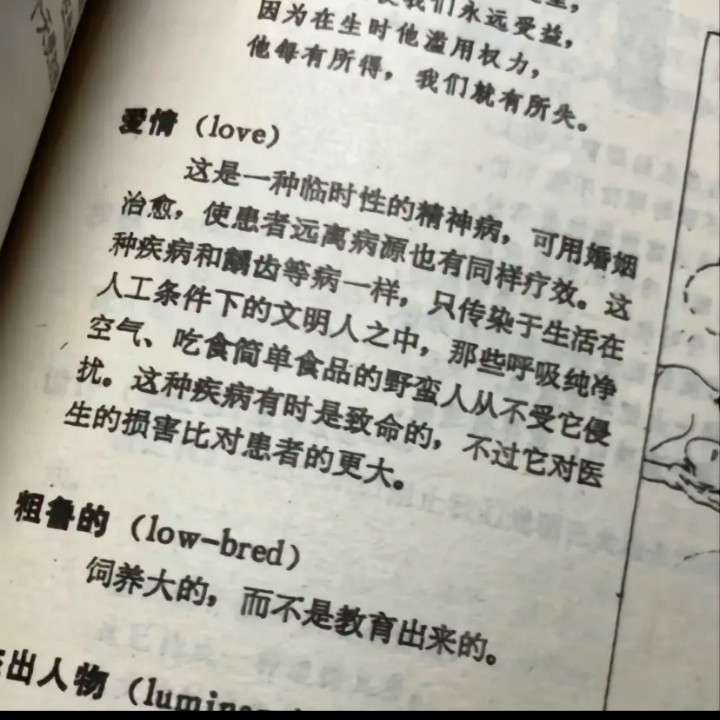 我们永远受益，
因为在生时他滥用权力，
他每有所得，我们就有所失。
爱情（love）
这是一种临时性的精神病，可用婚姻
治愈，使患者远离病源也有同样疗效。这
种疾病和龋齿等病一样，只传染于生活在
人工条件下的文明人之中，那些呼吸纯净
空气、吃食简单食品的野蛮人从不受它侵
扰。这种疾病有时是致命的，不过它对医
生的损害比对患者的更大。
粗鲁的（low-bred）
饲养大的，而不是教育出来的。
出人物（lumin